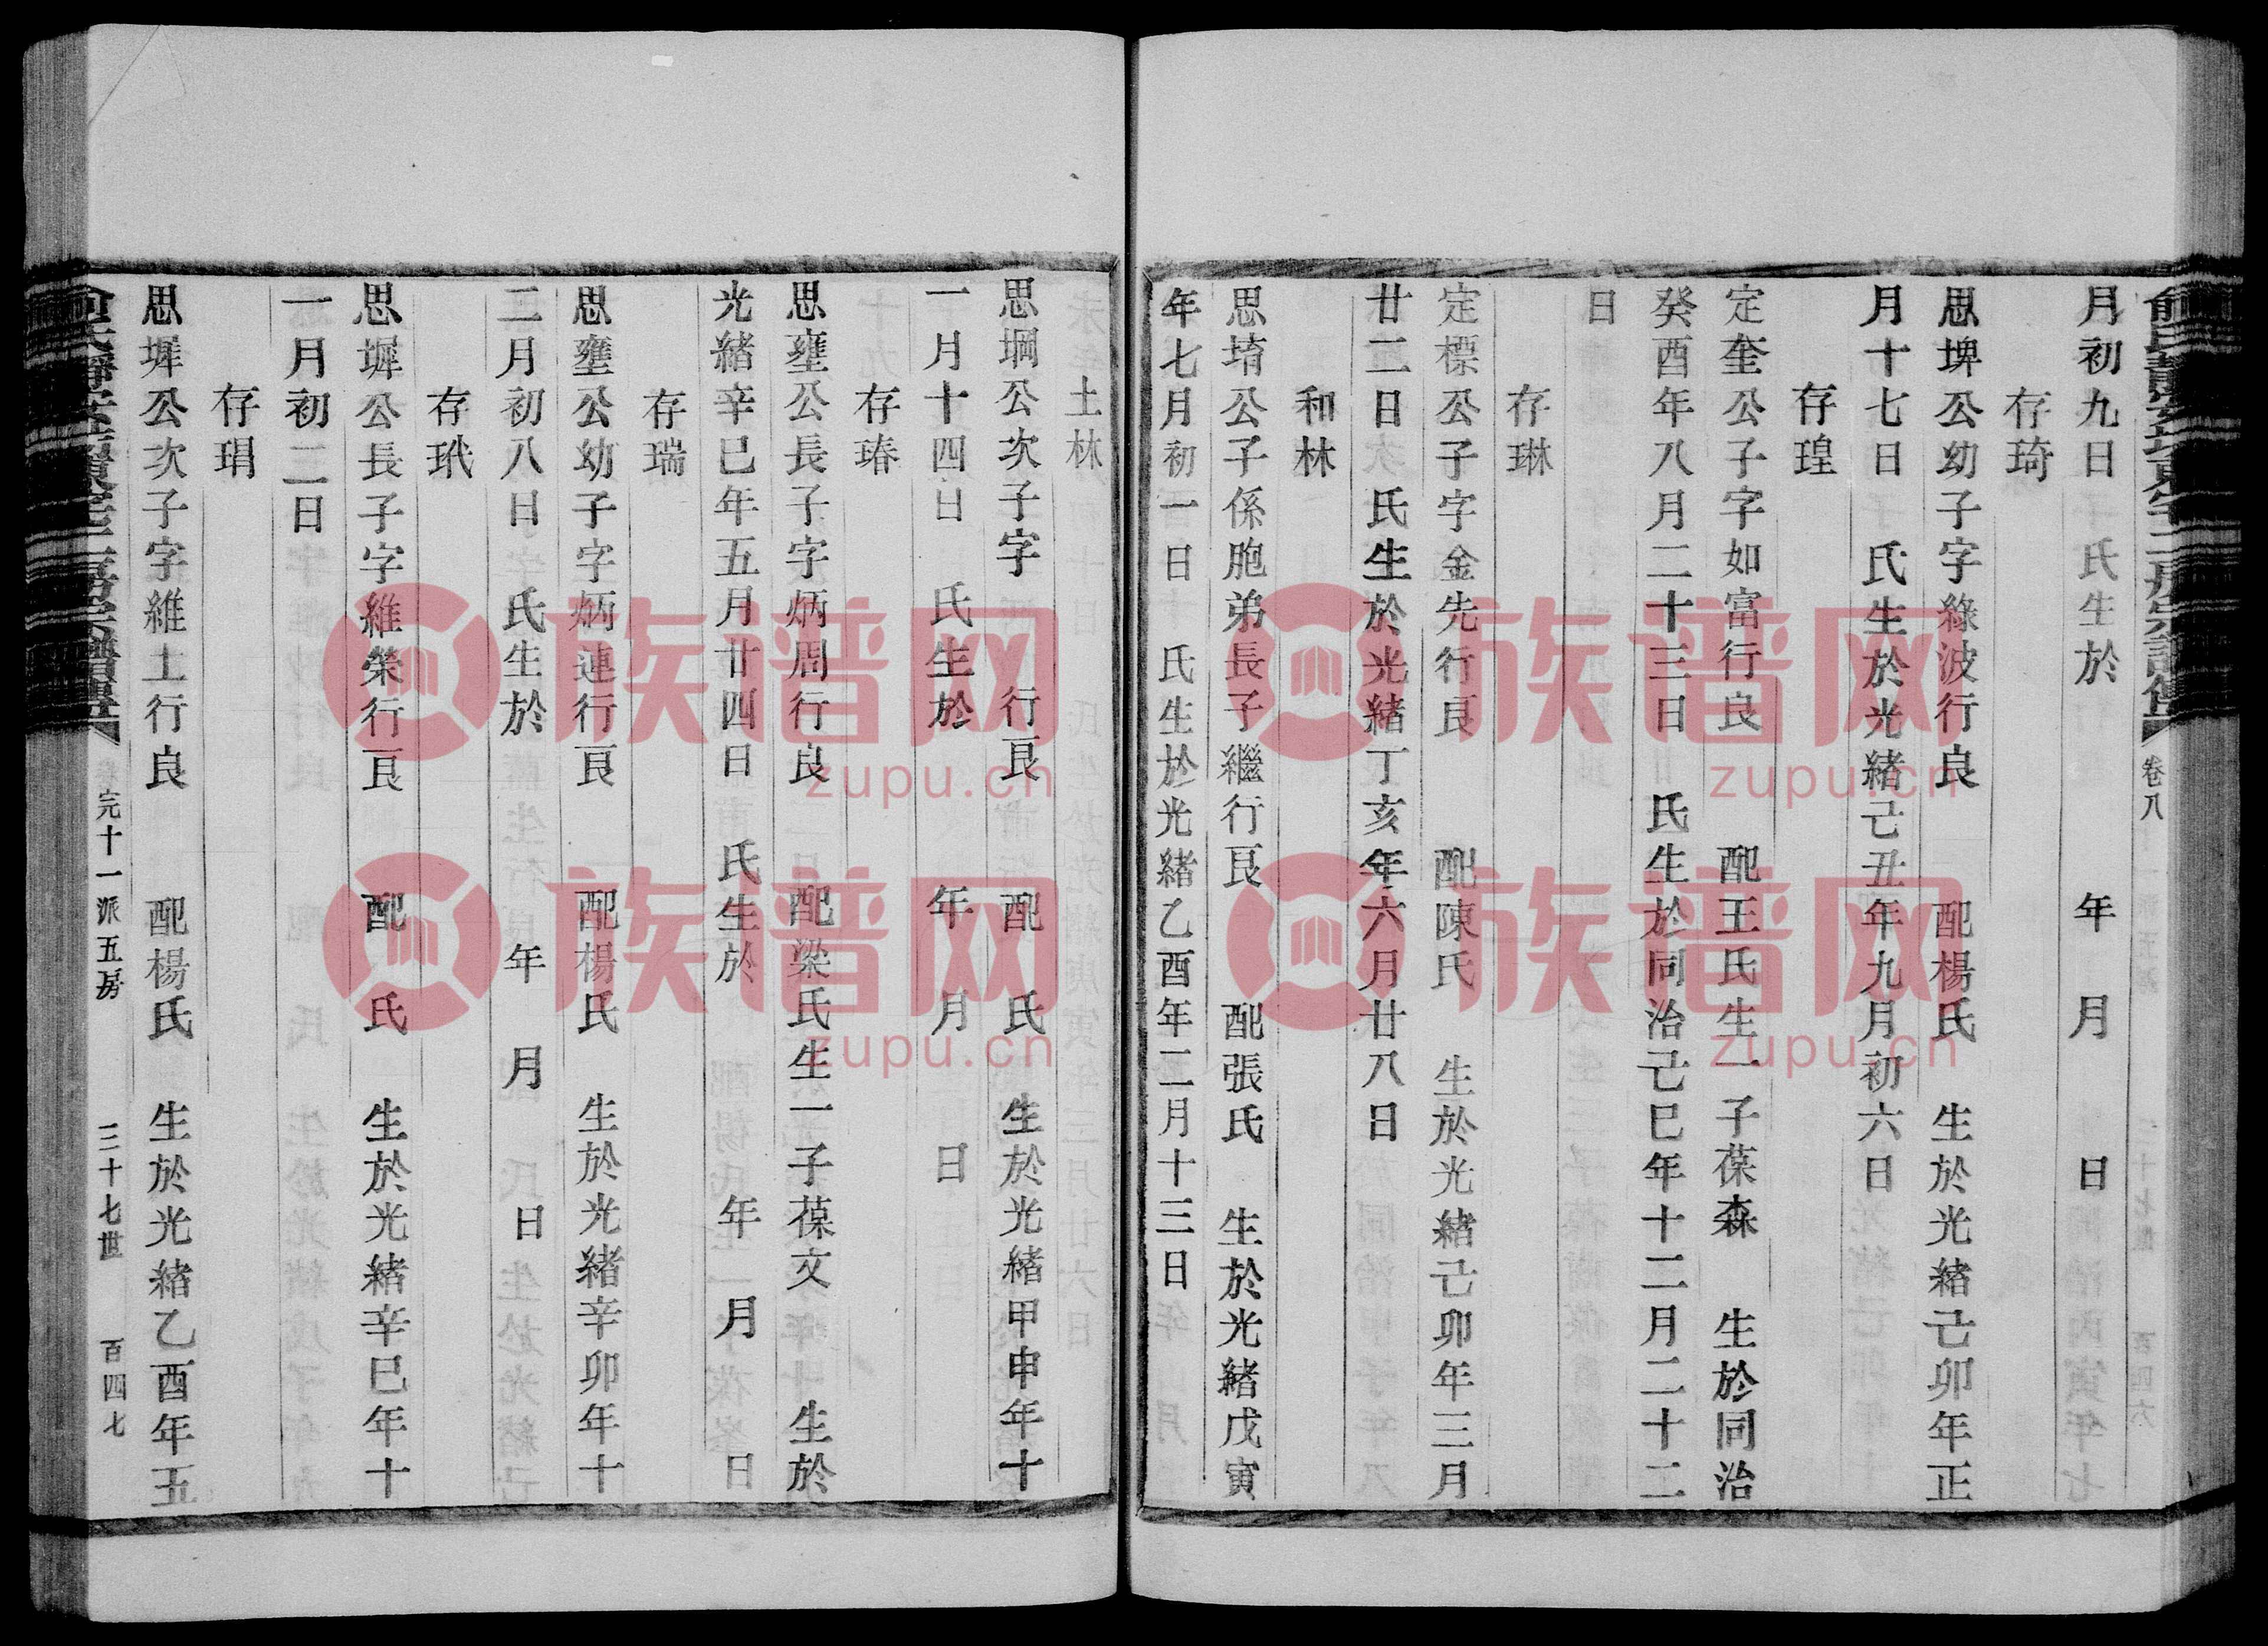 卷八
月初九日 氏生於 年 月 日
存琦
思埤公幼子字綠波行良 配楊氏 生於光緒己卯年正
月十七日 氏生於光緒己丑年九月初六日
存瑝
定奎公子字如富行良 配王氏生一子葆森 生於同治
癸酉年八月二十三日 氏生於同治己巳年十二月二十二
日
存琳
定標公子字金先行良 配陳氏 生於光緒己卯年三月
廿二日 氏生於光緒丁亥年六月廿八日
和林
思堉公子係胞弟長子繼行良 配張氏 生於光緒戊寅
年七月初一日 氏生於光緒乙酉年二月十三日
土林
思堈公次子字 行良 配 氏 生於光緒甲申年十
一月十四日 氏生於 年 月 日
存瑃
思壅公長子字炳周行良 配梁氏生一子葆文 生於
光緒辛巳年五月廿四日 氏生於 年 月 日
存瑞
思壅公幼子字炳連行良 配楊氏 生於光緒辛卯年十
二月初八日 氏生於 年 月 日
存玳
思墀公長子字維榮行良 配 氏 生於光緒辛巳年十
一月初二日
存琄
思墀公次子字維土行良 配楊氏 生於光緒乙酉年五
完十一派五房 三十七世 百四七
族谱网
zupu.cn
族谱网
zupu.cn
族谱网
zupu.cn
族谱网
zupu.cn